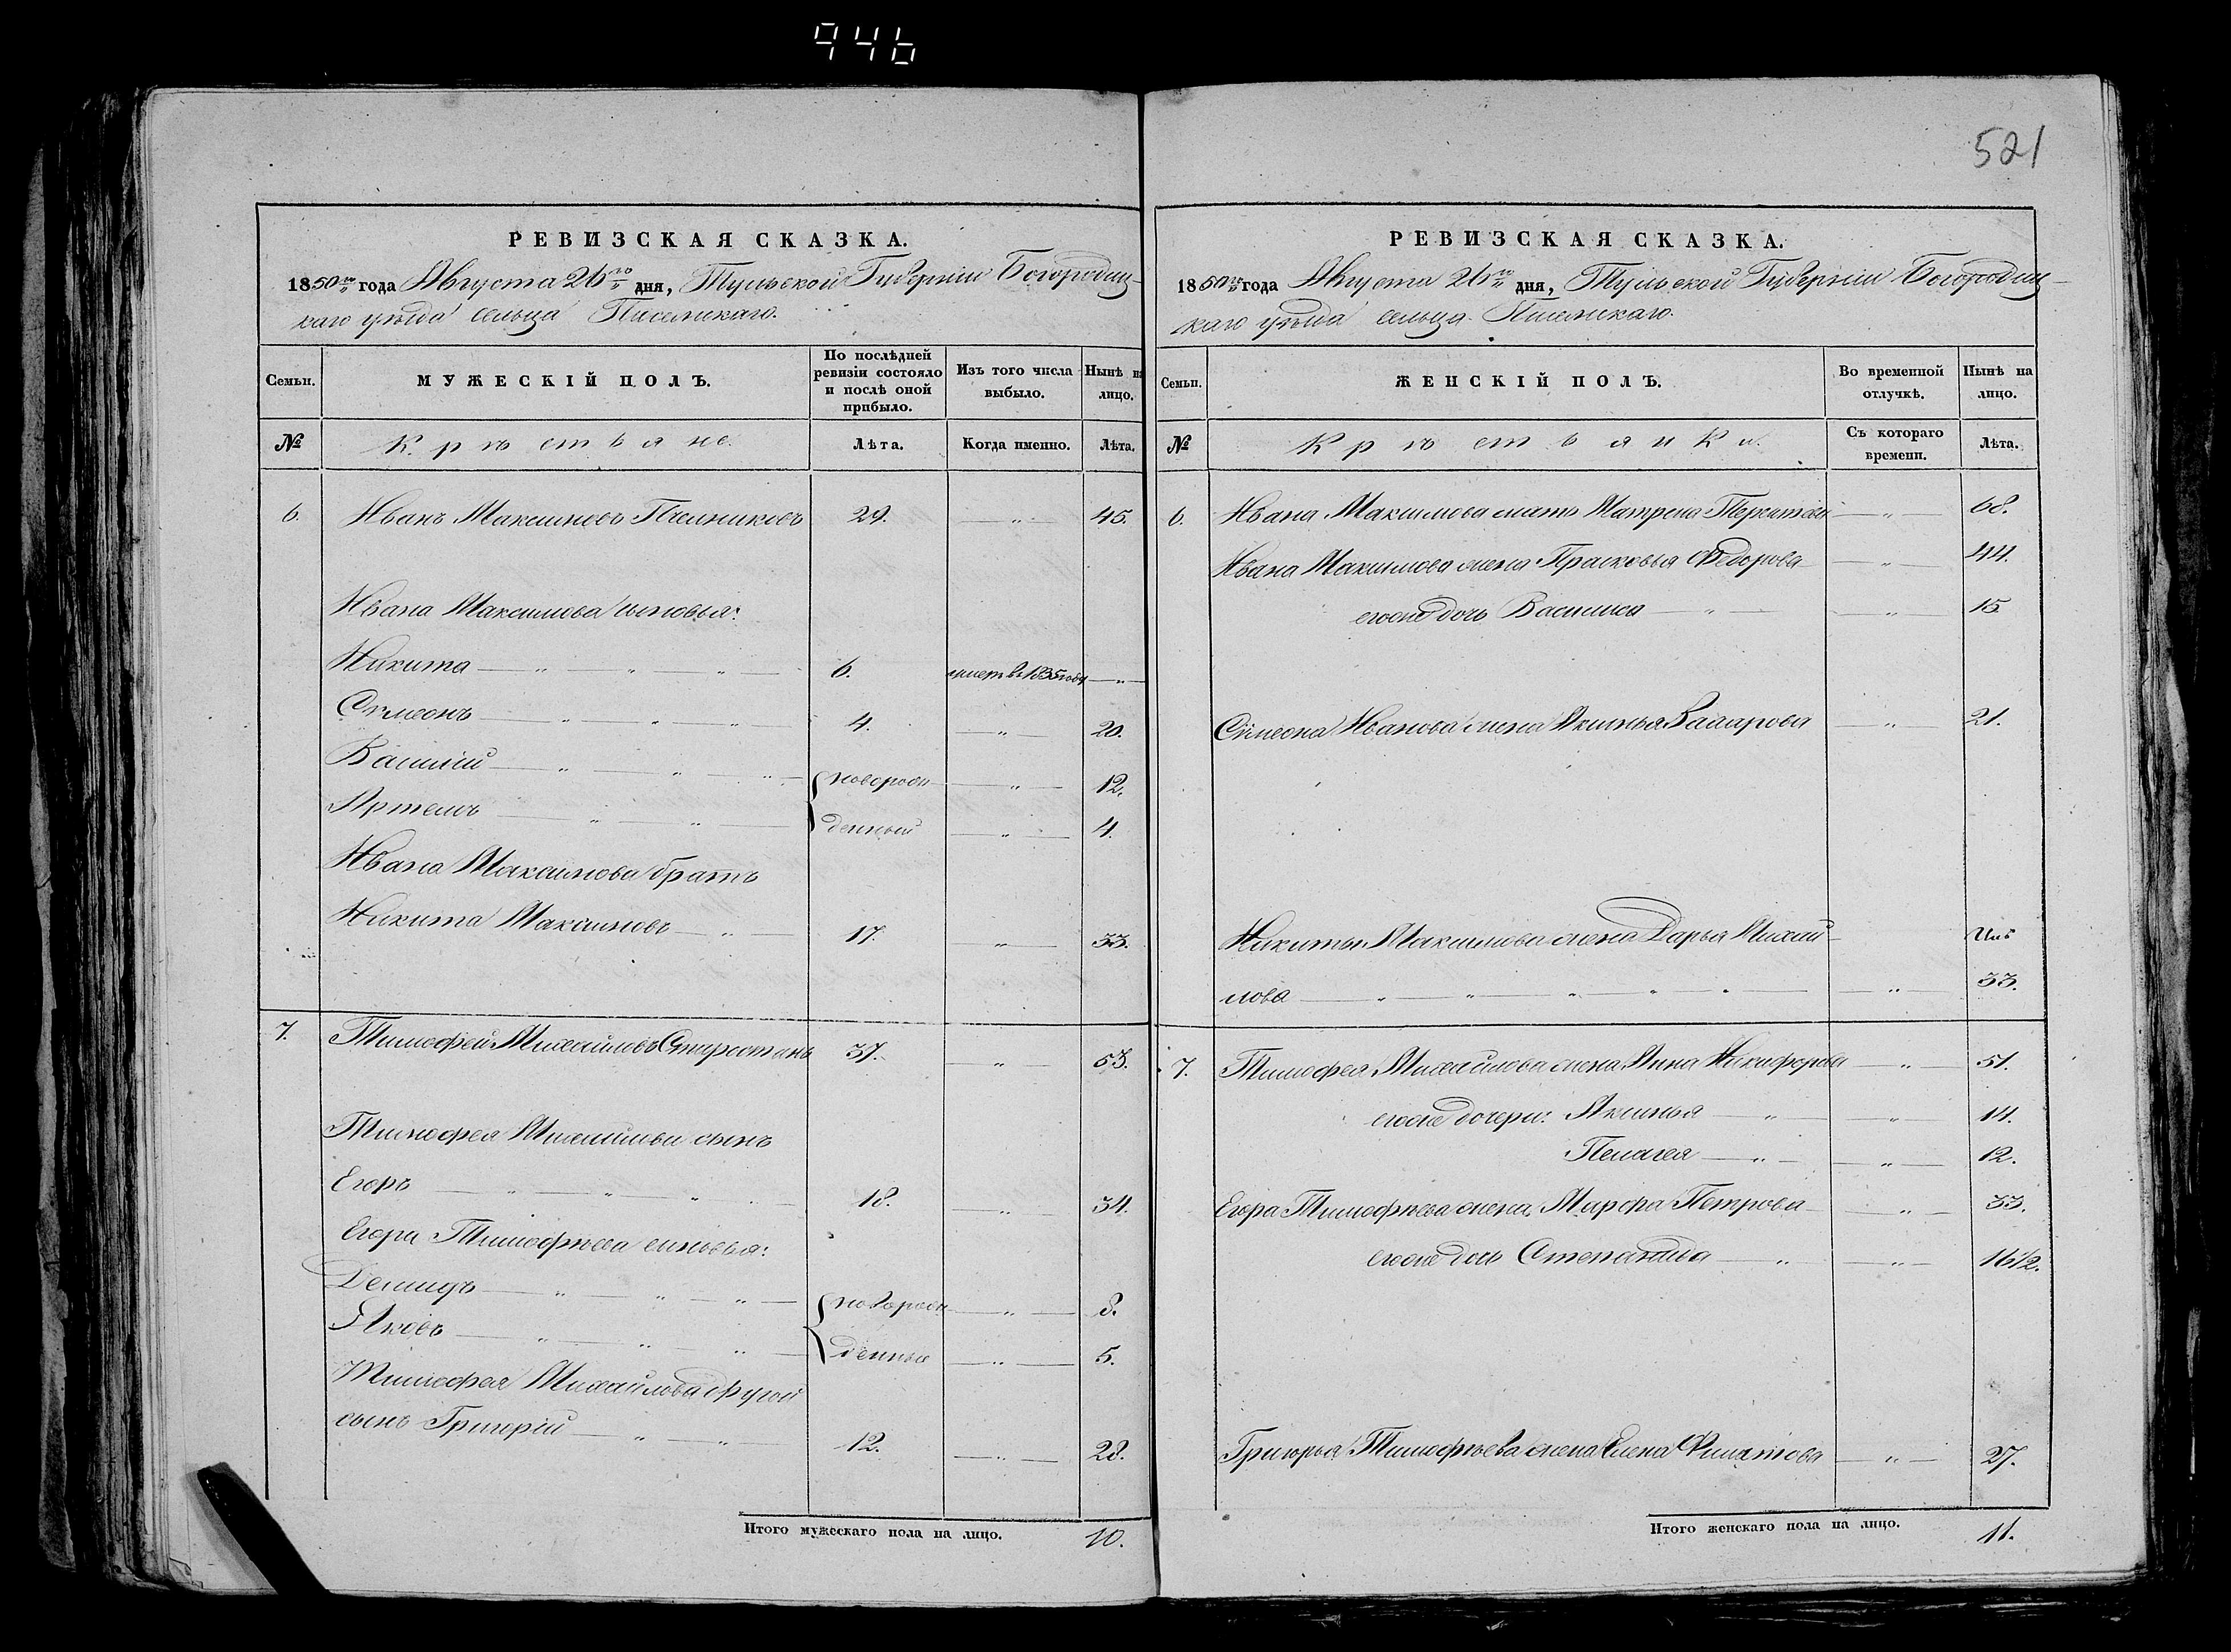 946
521
РЕВИЗСКАЯ СКАЗКА.
1850го года Августа 26го дня, Тульской Губерніи Богородиц-
каго уѣзда сельца
Семьи.
МУЖЕСКІЙ ПОЛЪ.
По послѣдней ревизіи состояло и послѣ оной прибыло.
Изъ того числа выбыло.
Нынѣ на лицо.
№
Крѣстьяне.
Лѣта.
Когда именно.
Лѣта.
6. Иванъ Максимовъ Пчелниковъ 29. — „ — 45.
Ивана Максимова сыновья:
Никита — „ — „ — „ — 6. умеръ в 1835 году — „ —
Сѵмеонъ — „ — „ — „ — 4. — „ — 20.
Василій — „ — „ — „ — новорож- — „ — 12.
Артемъ — „ — „ — денный — „ — 4.
Ивана Максимова братъ
Никита Максимовъ — „ — 17. — „ — 33.
7. Тимофей Михайловъ 37. — „ — 53.
Тимофея Михайлова сынъ
Егоръ — „ — „ — „ — 18. — „ — 34.
Егора Тимофѣева сыновья:
Демидъ — „ — „ — „ — новорож- — „ — 8.
Яковъ — „ — „ — „ — денные — „ — 5.
Тимофея Михайлова другой
сынъ Григорій — „ — „ — 12. — „ — 28.
Итого мужескаго пола на лицо. 10.
РЕВИЗСКАЯ СКАЗКА.
1850го года Августа 26го дня, Тульской Губерніи Богородиц-
каго уѣзда сельца
Семьи.
ЖЕНСКІЙ ПОЛЪ.
Во временной отлучкѣ.
Нынѣ на лицо.
№
Крѣстьянки.
Съ котораго времени.
Лѣта.
6. Ивана Максимова мать Матрена — „ — 68.
Ивана Максимова жена Прасковья Федорова — „ — 44.
его же дочь Василиса — „ — „ — 15.
Сѵмеона Иванова жена Акинья — „ — 21.
Никиты Максимова жена Дарья Михай-
лова — „ — „ — „ — „ — „ — „ — 33.
7. Тимофея Михайлова жена Анна Никифорова — „ — 51.
его же дочери: Акинья — „ — „ — 14.
Пелагея — „ — „ — 12.
Егора Тимофѣева жена Марфа Петрова — „ — 33.
его же дочь Степанида — „ — „ — 16½.
Григорья Тимофѣева жена Елена Филатова — „ — 27.
Итого женскаго пола на лицо. 11.